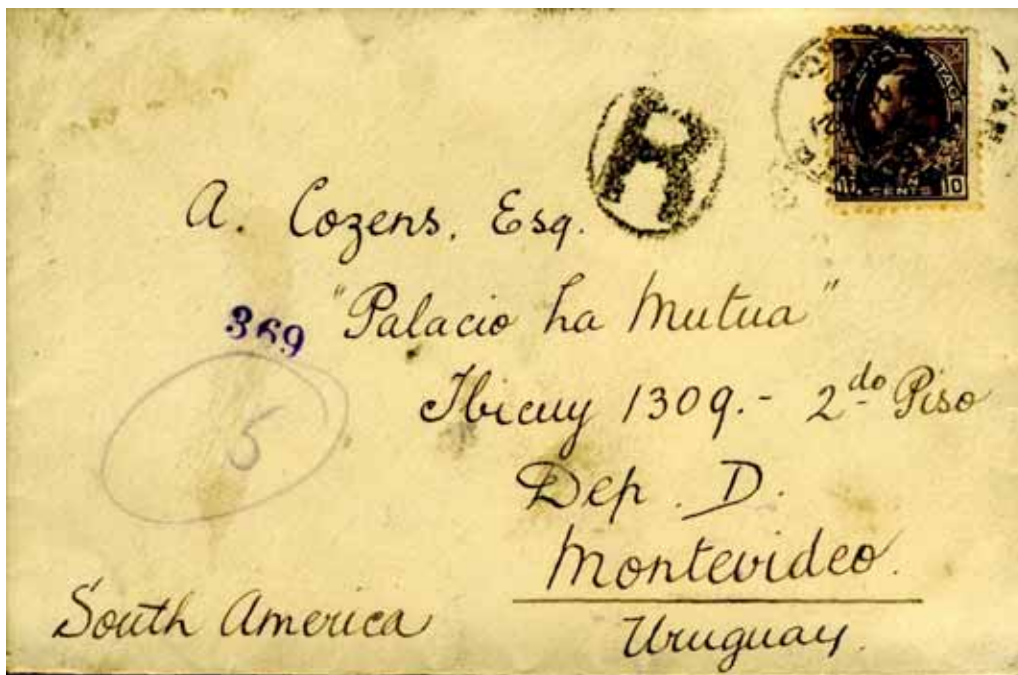 POSTAGE
CENTS 10
R
A. Cozens, Esq.
369
"Palacio La Mutua"
Ibicuy 1309.- 2do Piso
5
Dep. D.
Montevideo.
South America
Uruguay.